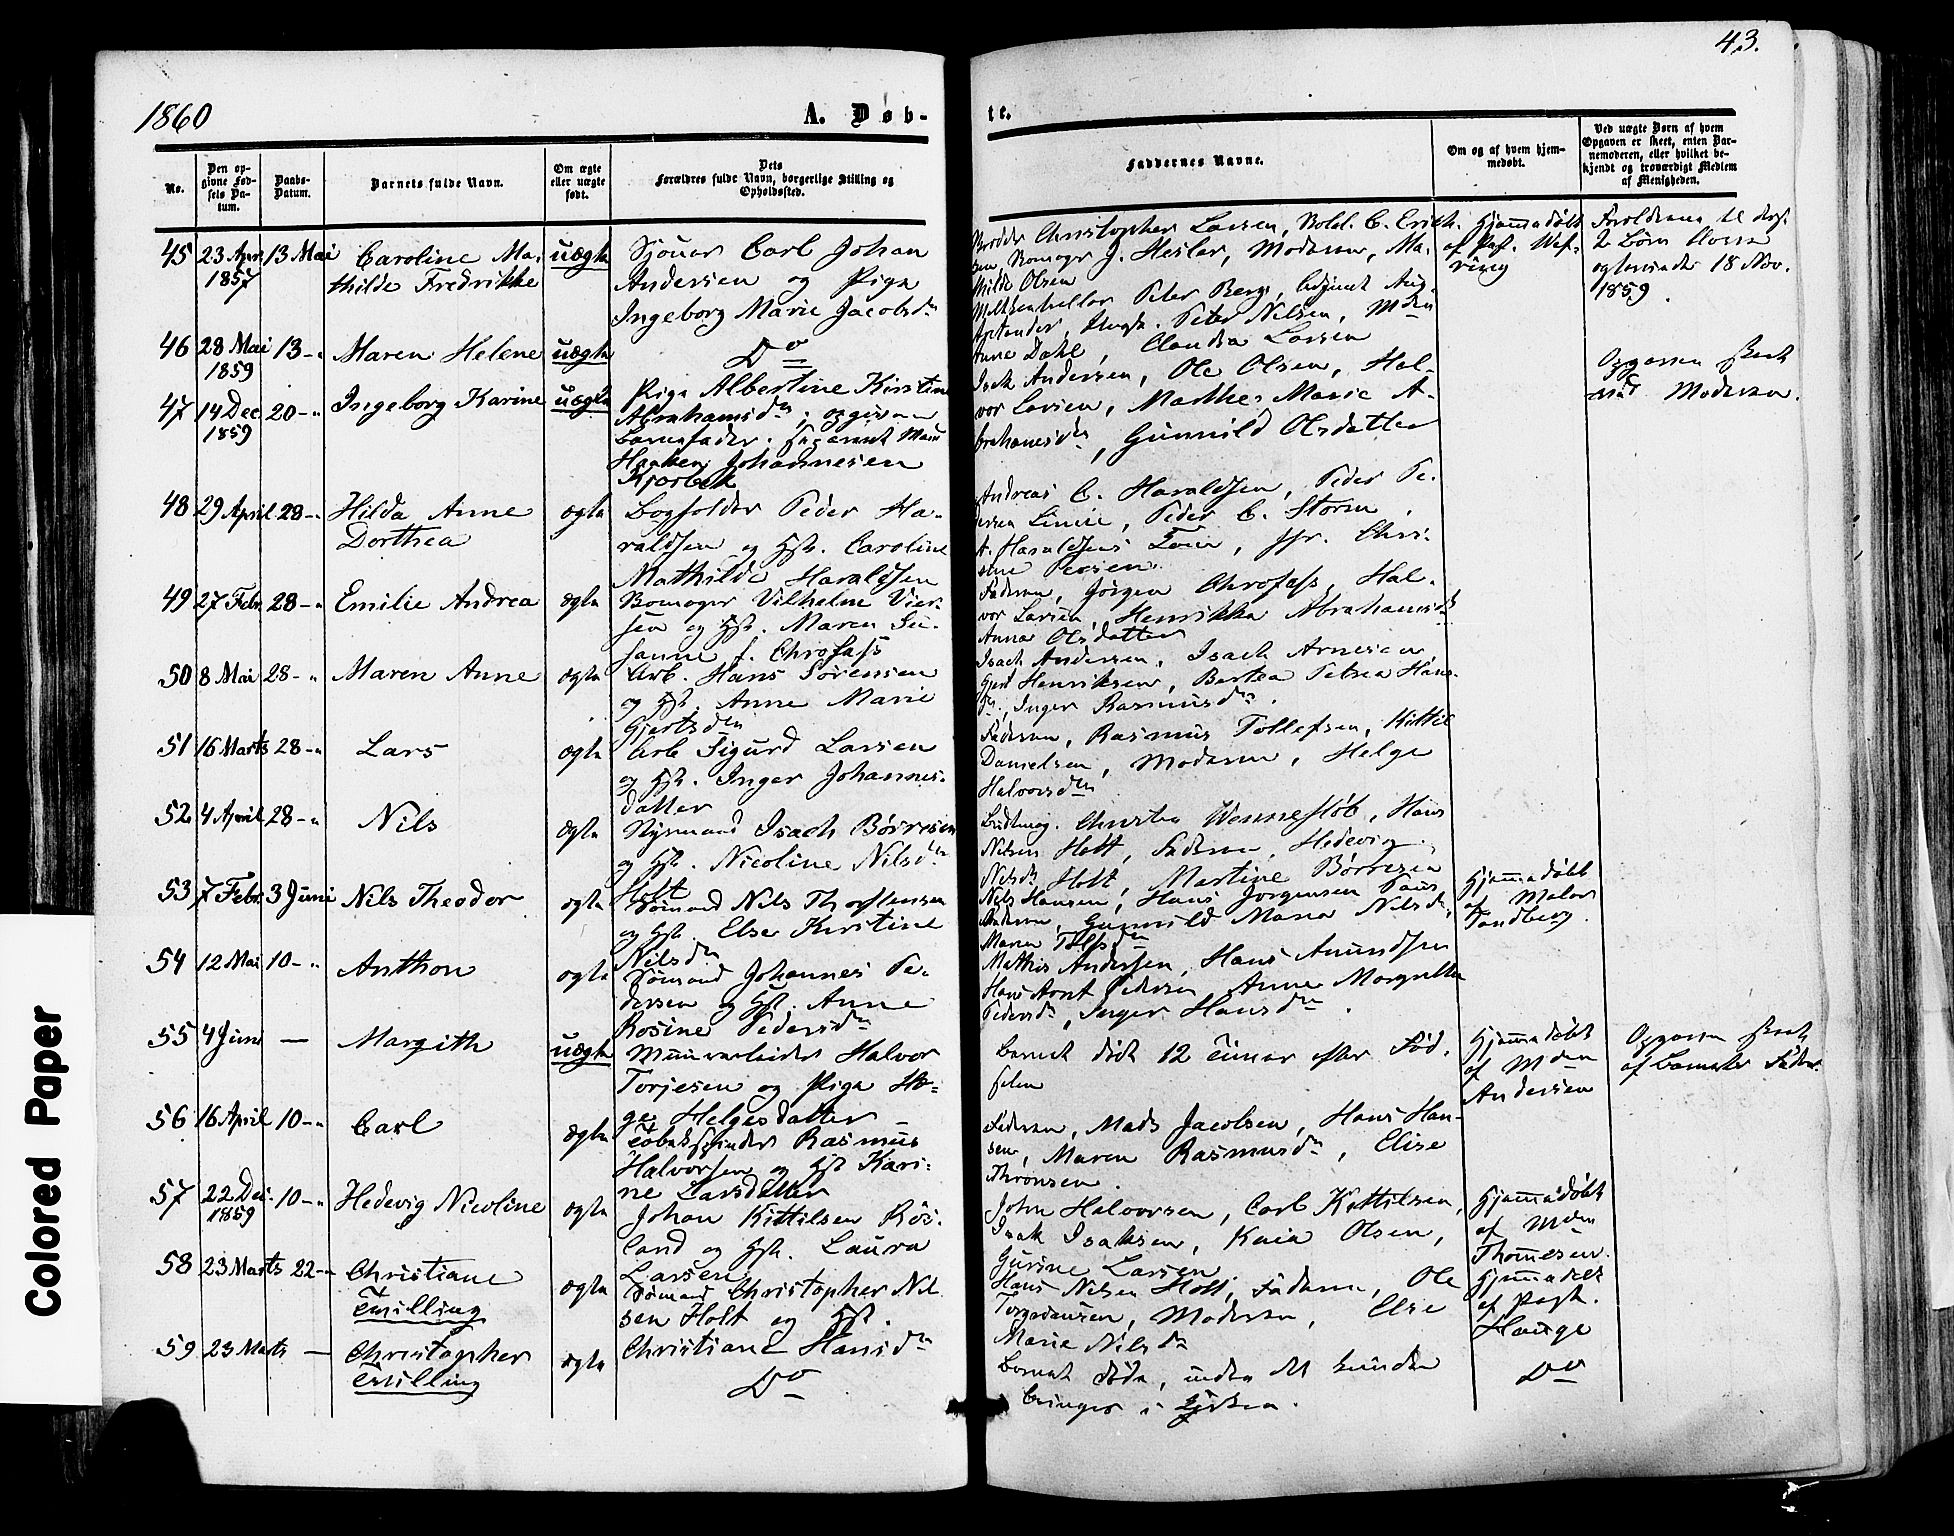 43.
1860
A. Døb-
te.
No.
Den op-
givne Fød-
sels Da-
tum.
Daabs-
Datum.
Barnets fulde Navn.
Om ægte
eller uægte
født.
Dets
Forældres fulde Navn, borgerlige Stilling og
Opholdssted.
Faddernes Navne.
Om og af hvem hjem-
medøbt.
Ved uægte Børn af hvem
Opgaven er skeet, enten Bar-
nemoderen, eller hvilket be-
kjendt og troværdigt Medlem
af Menigheden.
45 23 Apr. 1857 13 Mai
Caroline Ma-
thilde Fredrikke
uægte
Sjouer Carl Johan
Andersen og Piga
Ingeborg Marie Jacobsdr
Christopher Larsen, C. Erich-
sen, J. Hesler, Moderen, Ma-
thilde Olsen
Hjemmedøbt
af Past.
Forældrene til disse
2 Børn bleve
ægteviede 18 Nov.
1859.
46 28 Mai 1859 13 -"
Maren Helene
uægte
Do
Peter Berg,
Peter Nilsen, Mdm
Anne Dahl, Claudia Larsen
47 14 Dec 1859 20 -"
Ingeborg Karine
uægte
Pige Albertine Kirstine
Abrahamsdr, opgiven
Barnefader.
Haaken Johannesen
Kjørbek
Isak Andersen, Ole Olsen, Hal-
vor Larsen, Marthe Marie A-
brahamsdr, Gunnild Olsdatter
Opgaven skeet
ved Moderen.
48 29 April 28 -"
Hilda Anne
Dorthea
ægte
Bogholder Peder Ha-
raldsen og Hst. Caroline
Mathilde Haraldsen
Andreas C. Haraldsen, Peder Pe-
dersen Linie, Peder C. Storm,
A. Haraldsens Enke, Jfr. Chri-
stine
49 27 Febr. 28 -"
Emilie Andrea
ægte
Bomager Vilhelm Vier-
sen og Hst. Maren Su-
sanne f. Chrofass
Faderen, Jørgen Chrofass, Hal-
vor Larsen, Henrikke Abrahamsdr
Anna Olsdatter
50 8 Mai 28 -"
Maren Anne
ægte
Arb. Hans Sørensen
og Hst. Anne Marie
Gjertsdr
Isach Andersen, Isach Arnesen,
Gjert Henriksen, Berthea Petrea Hans-
dr, Inger Rasmusdr.
51 16 Marts 28 -"
Lars
ægte
Arb Sigurd Larsen
og Hst. Inger Johannes-
datter
Faderen, Rasmus Tollefsen, Kittil
Danielsen, Moderen, Helge
Halvorsdr
52 4 April 28 -"
Nils
ægte
Isach Børresen
og Hst. Nicoline Nilsdr
Holt
Christen Wennesløb, Hans
Nilsen Holt, Faderen, Hedevig
Nilsdr Holt, Martine Børresen
53 7 Febr. 3 Juni
Nils Theodor
ægte
Sømand Nils Thorstensen
og Hst. Else Kirstine
Nilsdr
Nils Hansen, Hans Jørgensen
Gunnild Maria Nilsdr,
Maren
Hjemmedøbt
af Maler
Sandberg.
54 12 Mai 10 -"
Anthon
ægte
Sømand Johannes Pe-
dersen og Hst. Anne
Rosine Pedersdr
Mathis Andersen, Hans Amundsen
Hans Arnt Pedersen Anne Margrethe
Pedersdr, Inger Hansdr.
55 4 Juni —
Margith
uægte
Muurarbeider Halvor
Torjesen og Piga He-
ge Helgesdatter
Barnet døde 12 Timer efter Fød-
selen
Hjemmedøbt
af Mdm
Andersen
Opgaven skeet
af Barnets Fader.
56 16 April 10 -"
Carl
ægte
Tobakspinder Rasmus
Halvorsen og Hst Kari-
ne Larsdatter
Faderen, Mads Jacobsen, Hans Han-
sen, Maren Rasmusdr, Elise
Thronsen.
57 22 Dec. 1859 10 -"
Hedevig Nicoline
ægte
Johan Kittilsen Røs-
land og Hst. Laura
Larsen
John Halvorsen, Carl Kittilsen,
Isak Isaksen, Kaia Olsen,
Gurine Larsen
Hjemmedøbt
af Mdm
Thomesen.
58 23 Marts 22 -"
Christiane
Tvilling
ægte
Sømand Christopher Nil-
sen Holt og Hst.
Christiane Hansdr
Hans Nilsen Holt, Faderen, Ole
Torgersen, Moderen, Else
Marie Nilsdr
Hjemmedøbt
af Past.
Hauge
59 23 Marts —
Christopher
Tvilling
ægte
Do
Barnet døde, inden det kunde
bringes i Kirken.
Do
Colored Paper